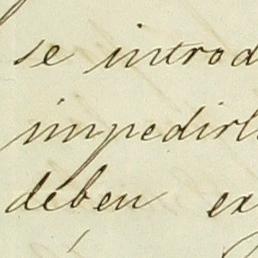 se introd
impedirl
deben ex